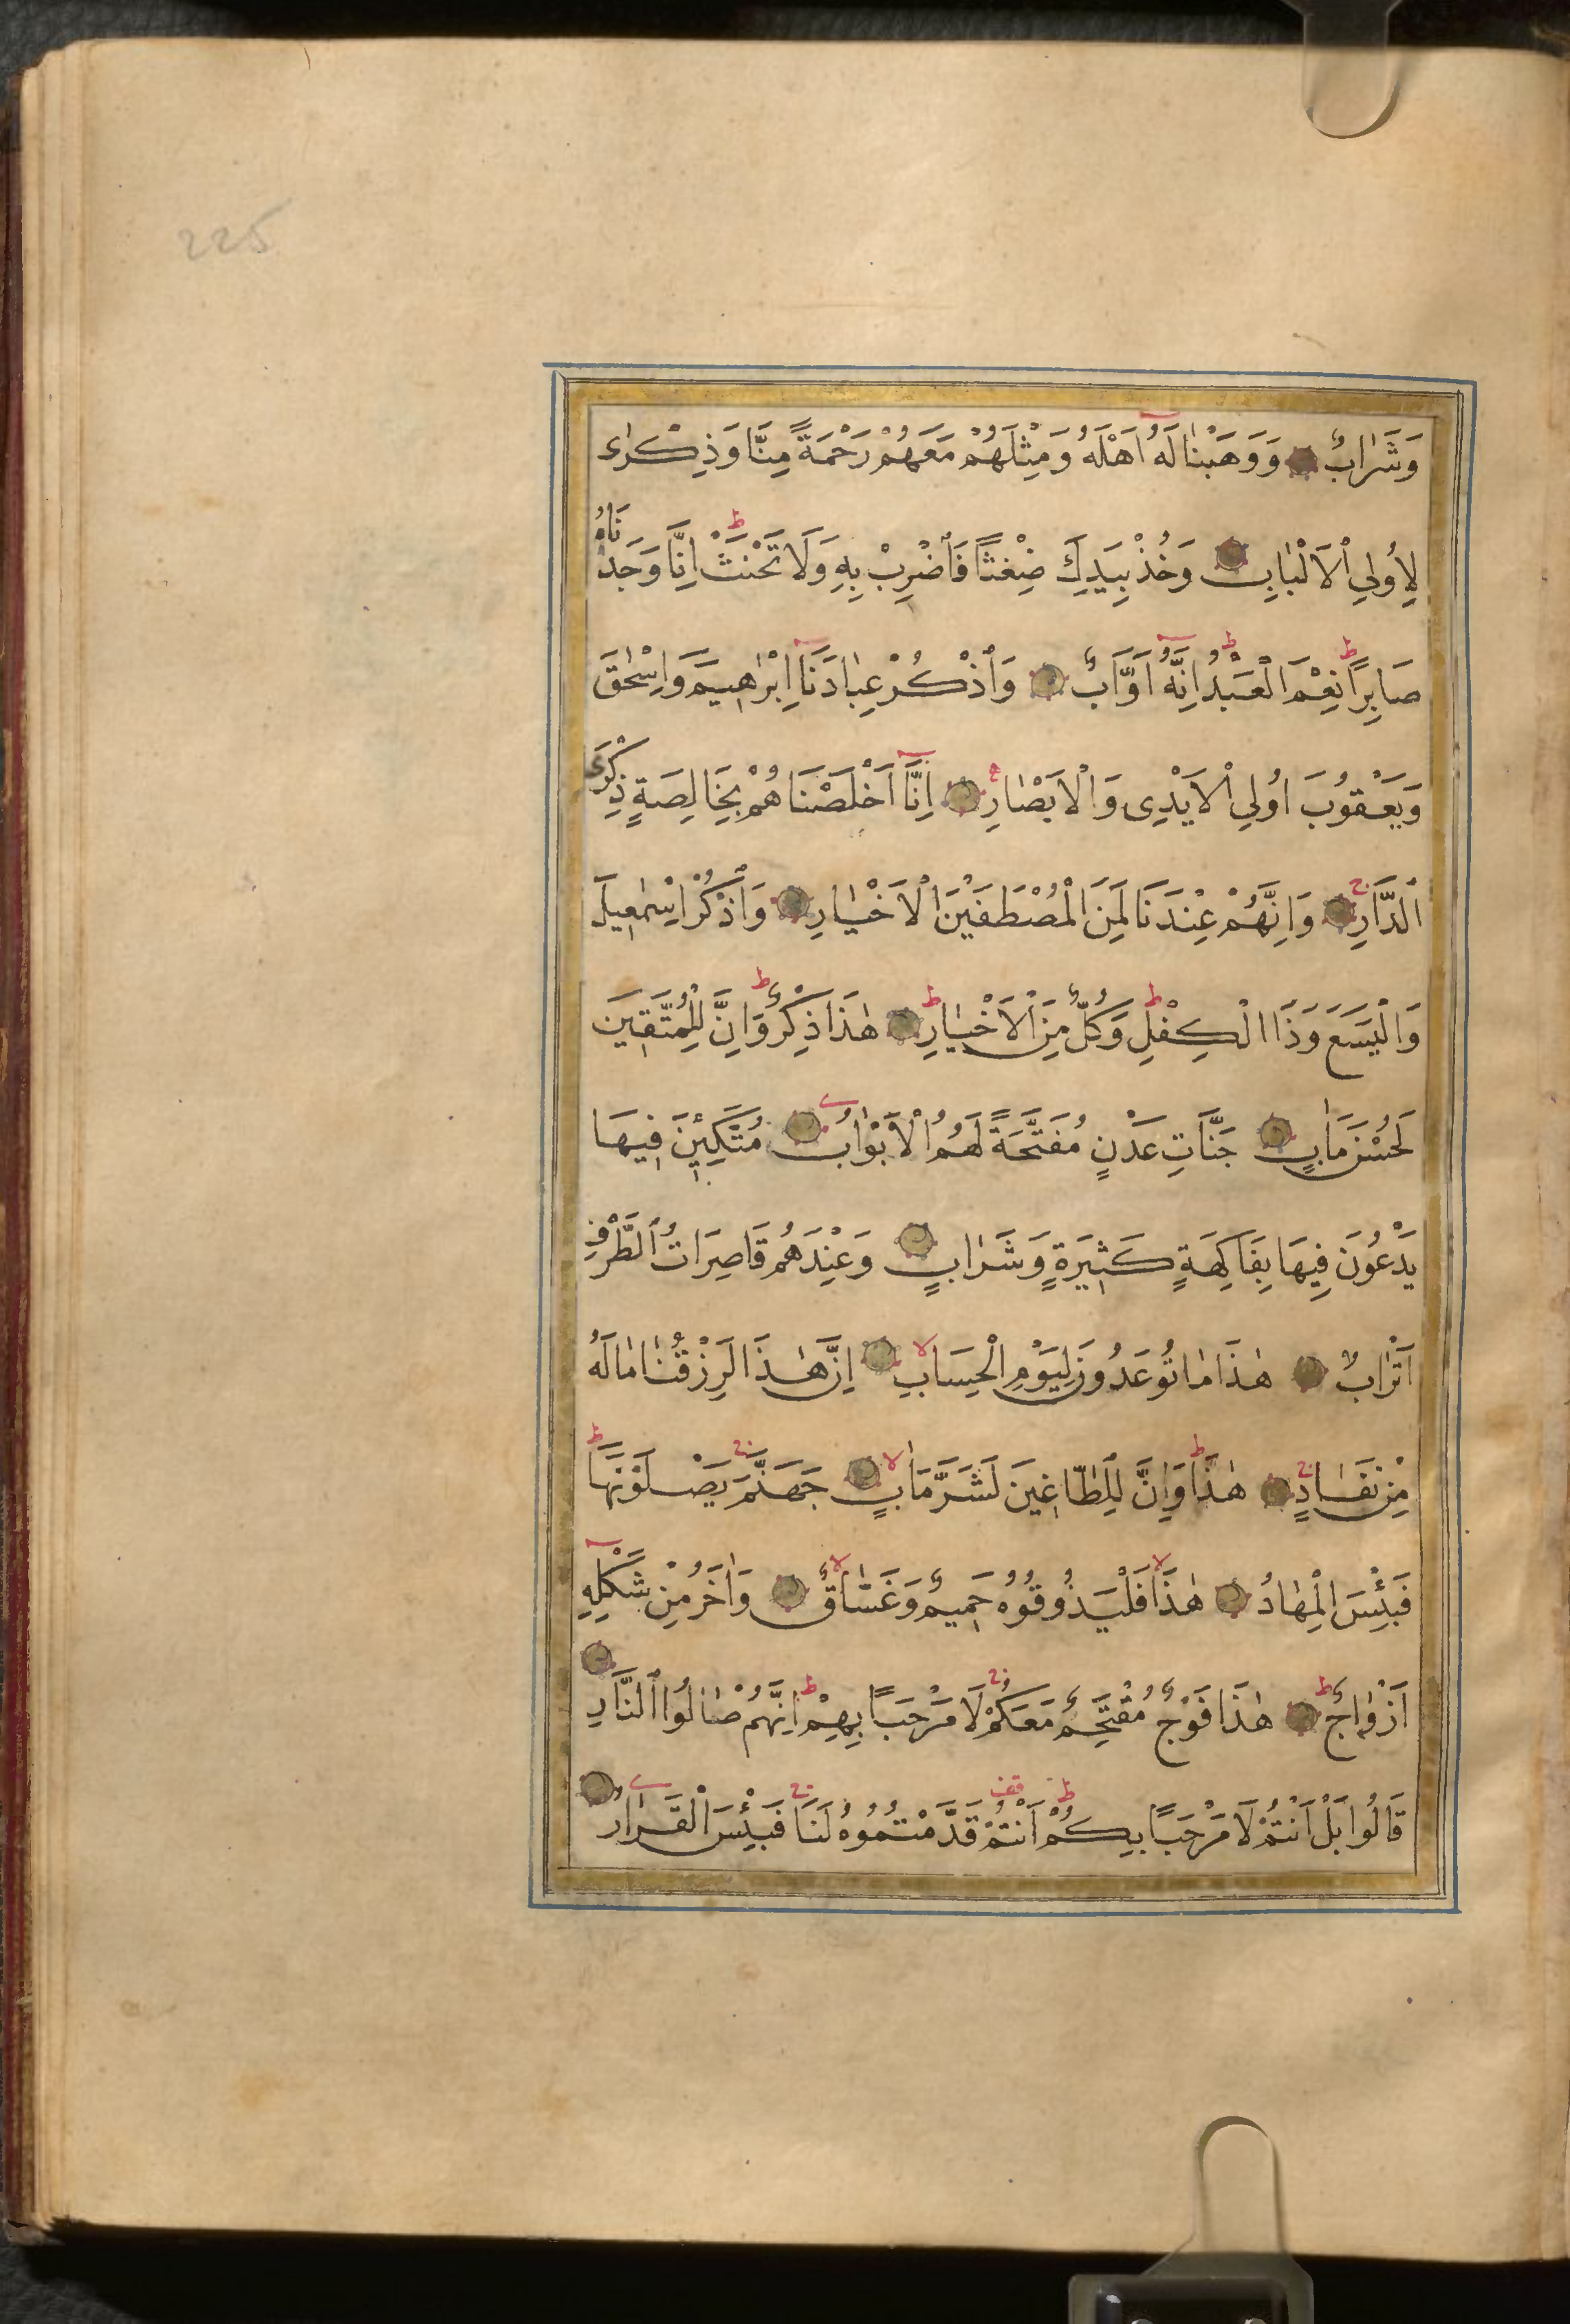 225
وَشَرَابٌ ۝ وَوَهَبْنَا لَهُ اَهْلَهُ وَمِثْلَهُمْ مَعَهُمْ رَحْمَةً مِنَّا وَذِكْرٰى
لِاُولِي الْاَلْبَابِ ۝ وَخُذْ بِيَدِكَ ضِغْثًا فَاضْرِبْ بِهِ وَلَا تَحْنَثْ ط اِنَّا وَجَدْنَاهُ
صَابِرًا ط نِعْمَ الْعَبْدُ ط اِنَّهُ اَوَّابٌ ۝ وَاذْكُرْ عِبَادَنَا اِبْرٰهِيمَ وَاِسْحٰقَ
وَيَعْقُوبَ اُولِي الْاَيْدِي وَالْاَبْصَارِ ۝ اِنَّا اَخْلَصْنَاهُمْ بِخَالِصَةٍ ذِكْرَى
الدَّارِ ج ۝ وَاِنَّهُمْ عِنْدَنَا لَمِنَ الْمُصْطَفَيْنَ الْاَخْيَارِ ۝ وَاذْكُرْ اِسْمٰعِيلَ
وَالْيَسَعَ وَذَا الْكِفْلِ ط وَكُلٌّ مِنَ الْاَخْيَارِ ط ۝ هٰذَا ذِكْرٌ ط وَاِنَّ لِلْمُتَّقِينَ
لَحُسْنَ مَاٰبٍ ۝ جَنَّاتِ عَدْنٍ مُفَتَّحَةً لَهُمُ الْاَبْوَابُ ۝ مُتَّكِئِينَ فِيهَا
يَدْعُونَ فِيهَا بِفَاكِهَةٍ كَثِيرَةٍ وَشَرَابٍ ۝ وَعِنْدَهُمْ قَاصِرَاتُ الطَّرْفِ
اَتْرَابٌ ۝ هٰذَا مَا تُوعَدُونَ لِيَوْمِ الْحِسَابِ لا ۝ اِنَّ هٰذَا لَرِزْقُنَا مَا لَهُ
مِنْ نَفَادٍ ج ۝ هٰذَا ط وَاِنَّ لِلطَّاغِينَ لَشَرَّ مَاٰبٍ لا ۝ جَهَنَّمَ ج يَصْلَوْنَهَا ط
فَبِئْسَ الْمِهَادُ ۝ هٰذَا لا فَلْيَذُوقُوهُ حَمِيمٌ وَغَسَّاقٌ لا ۝ وَاٰخَرُ مِنْ شَكْلِهِ
اَزْوَاجٌ ط ۝ هٰذَا فَوْجٌ مُقْتَحِمٌ مَعَكُمْ ج لَا مَرْحَبًا بِهِمْ ط اِنَّهُمْ صَالُوا النَّارِ ۝
قَالُوا بَلْ اَنْتُمْ لَا مَرْحَبًا بِكُمْ ط اَنْتُمْ قَدَّمْتُمُوهُ لَنَا ج فَبِئْسَ الْقَرَارُ ۝